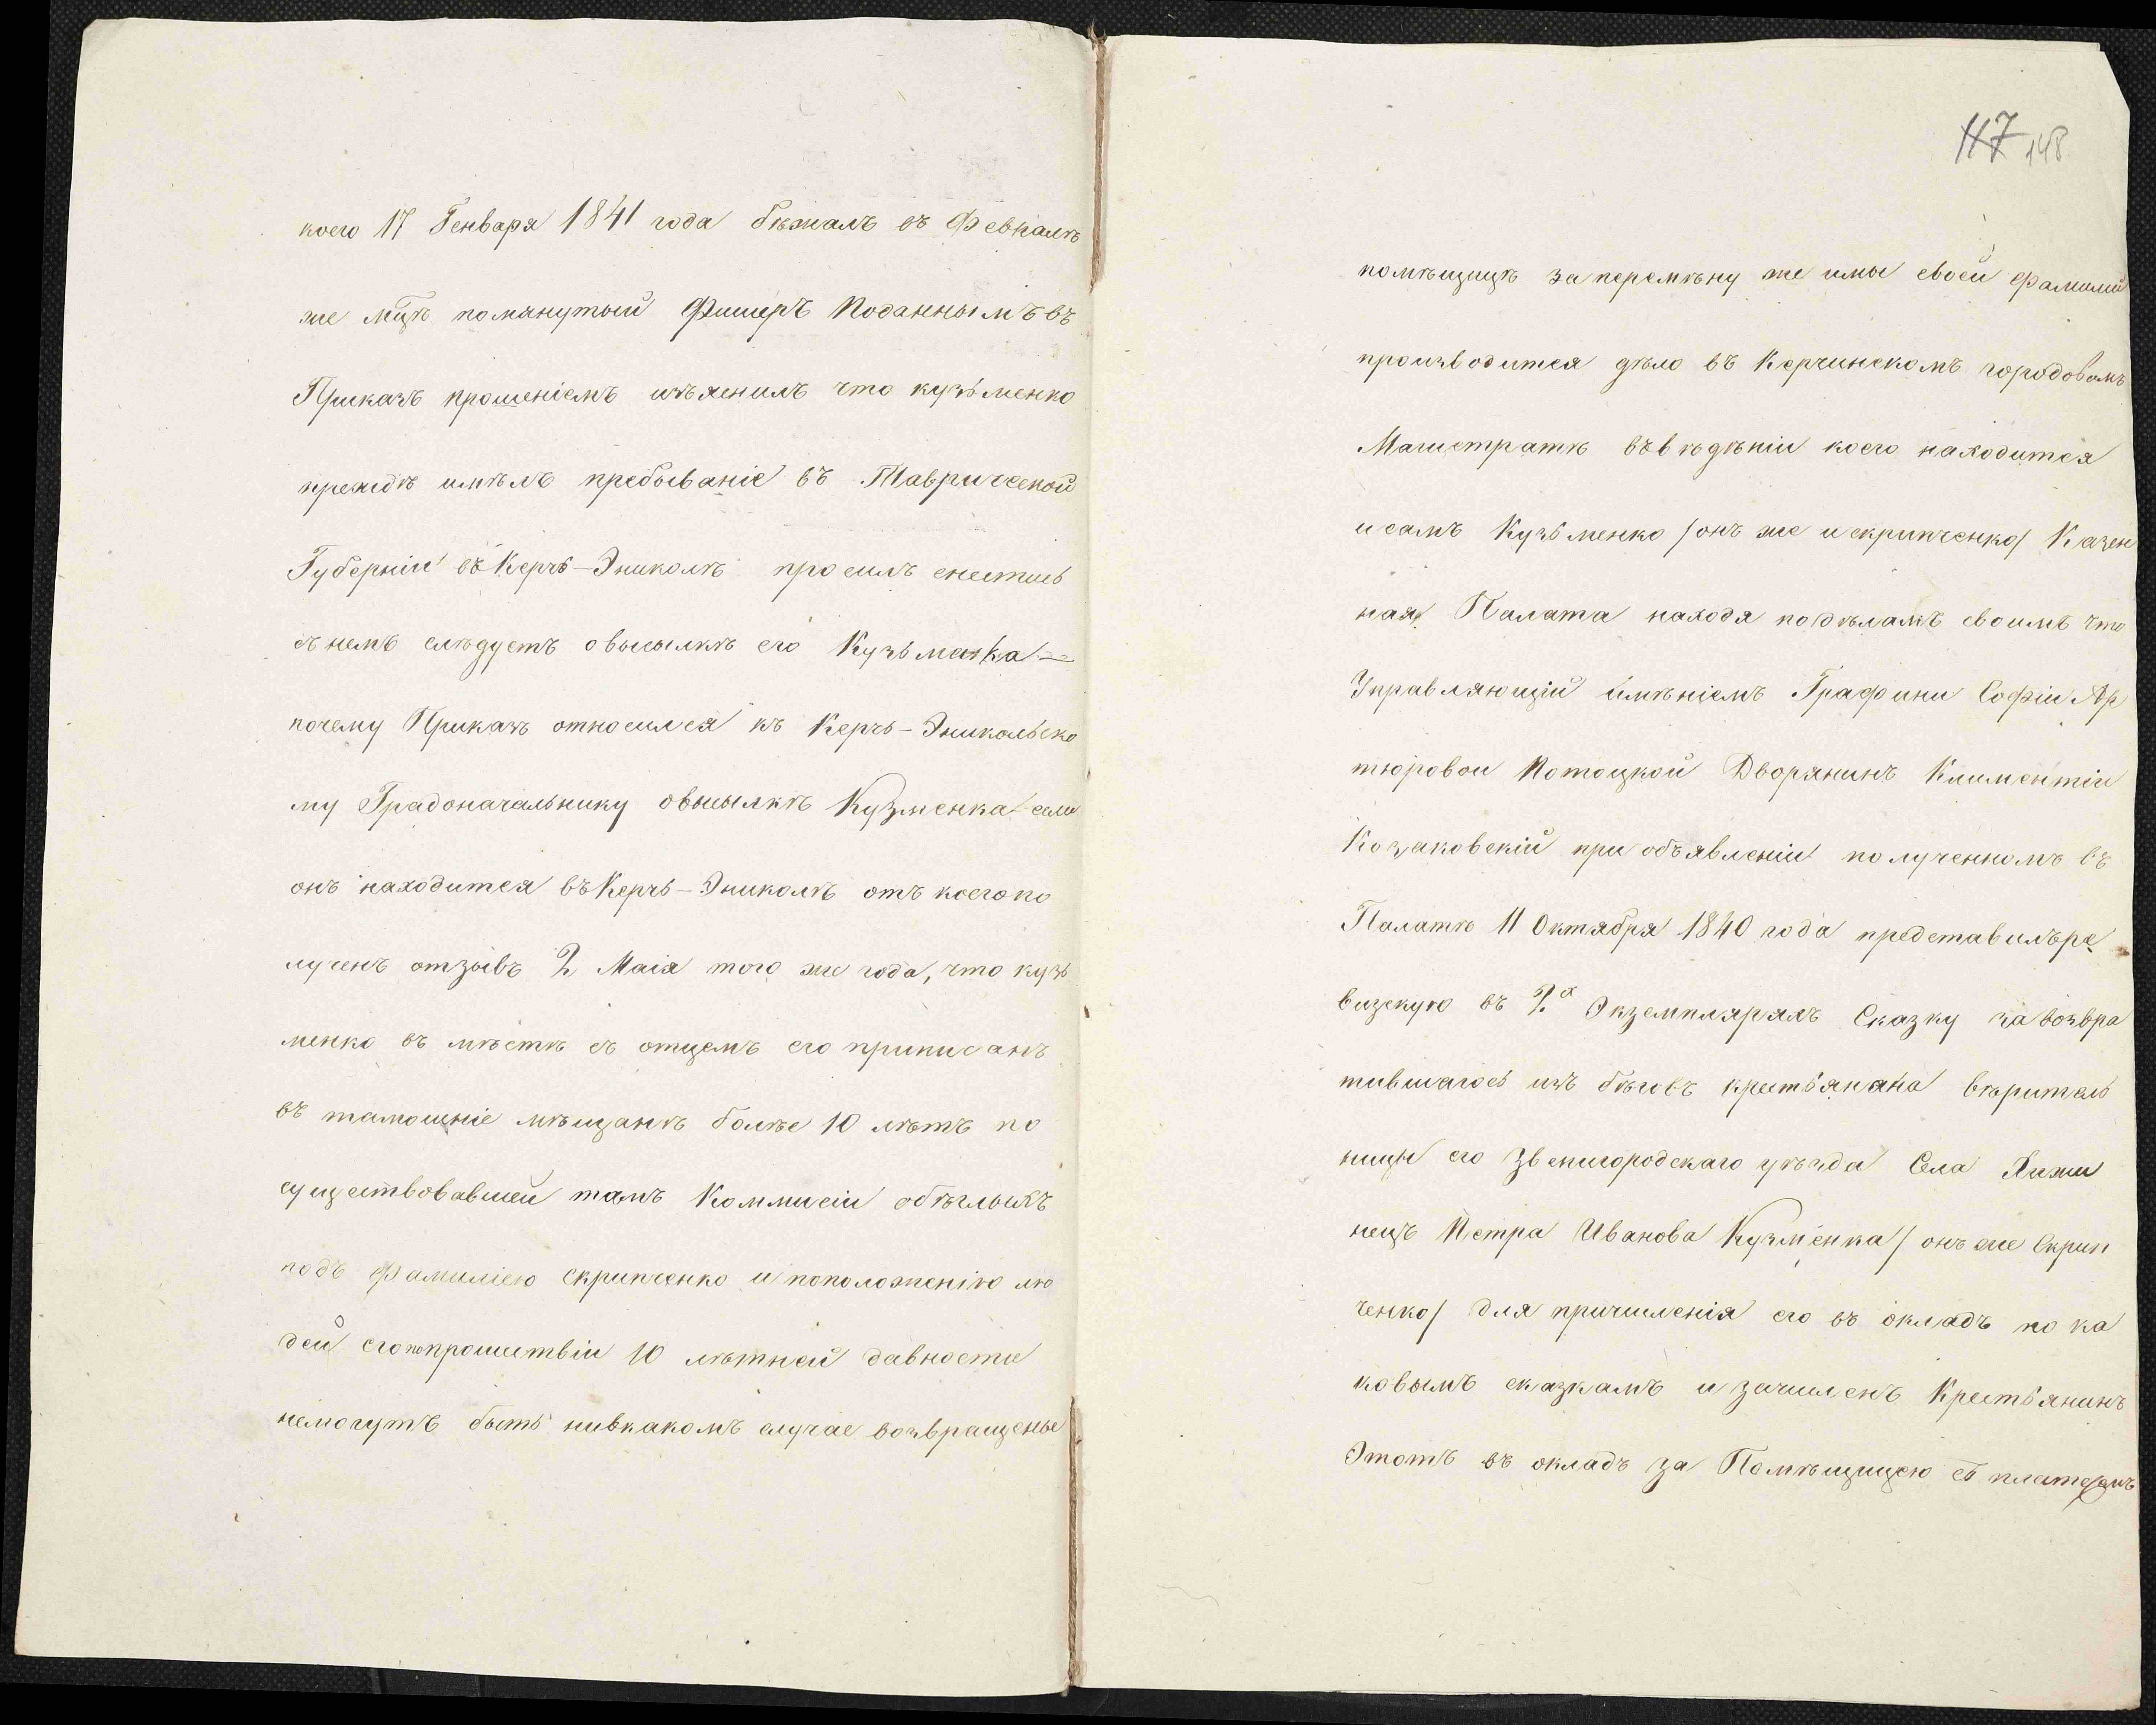 коего 17 Генваря 1841 года бѣжалъ въ Февралѣ
же мцѣ помянутый Фишеръ Поданнымъ въ
Приказъ прошеніемъ изъяснилъ что кузьменко
прежде имѣлъ пребываніе въ Таврической
Губерніи въ Керчь-Эниколѣ просилъ снестись
съ кемъ слѣдуетъ о высылкѣ его Кузьменка —
почему Приказъ относился къ Керчь-Эникольско
му Градоначальнику о высылкѣ Кузменка если
онъ находится въ Керчь-Эниколѣ отъ коего по
лученъ отзывъ 2 Маія того же года, что кузь
менко въ мѣстѣ съ отцемъ его приписанъ
въ тамошніе мѣщанѣ болѣе 10 лѣтъ по
существовавшей тамъ Коммисіи о бѣглыхъ
подъ фамиліею скрипченко и по положенію лю
дей сего по прошествіи 10 лѣтней давности
немогутъ быть ни в какомъ случае возвращены
117 148
помѣщицѣ за перемѣну же имы своей фамиліи
производится дѣло въ Керчинскомъ городовомъ
Магистратѣ въ вѣдѣніи коего находится
и самъ Кузьменко /онъ же и скрипченко/ Казен
ная Палата находя по дѣламъ своимъ что
Управляющій имѣніемъ Графини Софіи Ар
тюровои Потоцкой Дворянинъ Климентіи
Козаковскій при объявленіи полученномъ въ
Палатѣ 11 Октября 1840 года представилъ ре
визскую въ 2х Экземплярахъ Сказку за возвра
тившагось изъ бѣговъ крестьянана вѣритель
ницы его Звенигородскаго уѣзда Села
нецъ Петра Иванова Кузменка / онъ же Скрип
ченко/ для причисленія его въ окладъ по ка
ковымъ сказкамъ и зачисленъ Крестьянинъ
Этотъ въ окладъ за Помѣщицею съ платежемъ